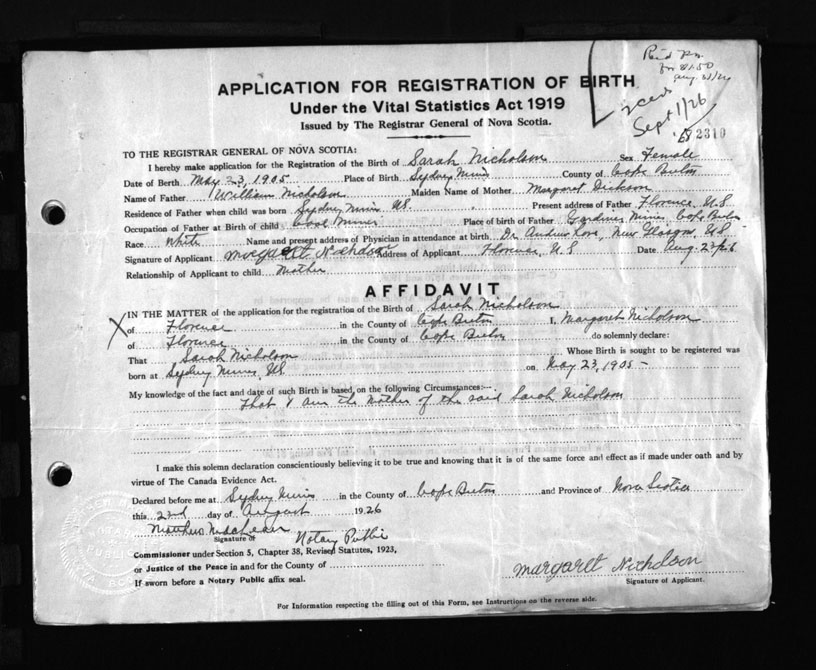 Paid
for $1.50
Aug. 31/26
Sept 1/26
2310
APPLICATION FOR REGISTRATION OF BIRTH
Under the Vital Statistics Act 1919
Issued by The Registrar General of Nova Scotia.
TO THE REGISTRAR GENERAL OF NOVA SCOTIA:
I hereby make application for the Registration of the Birth of Sarah Nicholson Sex Female
Date of Birth May 23, 1905 Place of Birth Sydney Mines County of Cape Breton
Name of Father William Nicholson Maiden Name of Mother Margaret Dickson
Residence of Father when child was born Sydney Mines NS. Present address of Father Florence, NS
Occupation of Father at Birth of child Coal Miner Place of birth of Father Gardiner Mines Cape Breton
Race White Name and present address of Physician in attendance at birth Dr Andrew Love, New Glasgow, NS
Signature of Applicant Margaret Nicholson Address of Applicant Florence, NS Date Aug. 23/26
Relationship of Applicant to child Mother
AFFIDAVIT
IN THE MATTER of the application for the registration of the Birth of Sarah Nicholson
X of Florence in the County of Cape Breton I, Margaret Nicholson
of Florence in the County of Cape Breton do solemnly declare:
That Sarah Nicholson Whose Birth is sought to be registered was
born at Sydney Mines, NS on May 23, 1905 -
My knowledge of the fact and date of such Birth is based, on the following Circumstances:-
That I am the Mother of the said Sarah Nicholson
I make this solemn declaration conscientiously believing it to be true and knowing that it is of the same force and effect as if made under oath and by
virtue of The Canada Evidence Act.
Declared before me at Sydney Mines in the County of Cape Breton and Province of Nova Scotia
this 23rd day of August 1926
Matthew MacLean
Signature of Notary Public
Commissioner under Section 5, Chapter 38, Revised Statutes, 1923,
or Justice of the Peace in and for the County of
If sworn before a Notary Public affix seal.
Margaret Nicholson
Signature of Applicant.
For Information respecting the filling out of this Form, see Instructions on the reverse side.